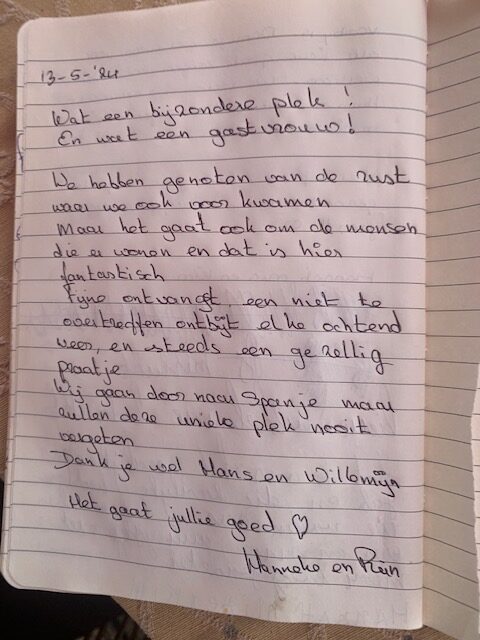 13-5-'24
Wat een bijzondere plek !
En wat een gastvrouw !
We hebben genoten van de rust
waar we ook voor kwamen
Maar het gaat ook om de mensen
die er wonen en dat is hier
fantastisch
Fijne ontvangst, een niet te
overtreffen ontbijt elke ochtend
weer, en steeds een gezellig
praatje
Wij gaan door naar Spanje maar
zullen deze unieke plek nooit
vergeten
Dank je wel Hans en Willemijn
Het gaat jullie goed ♡
Hanneke en Rein